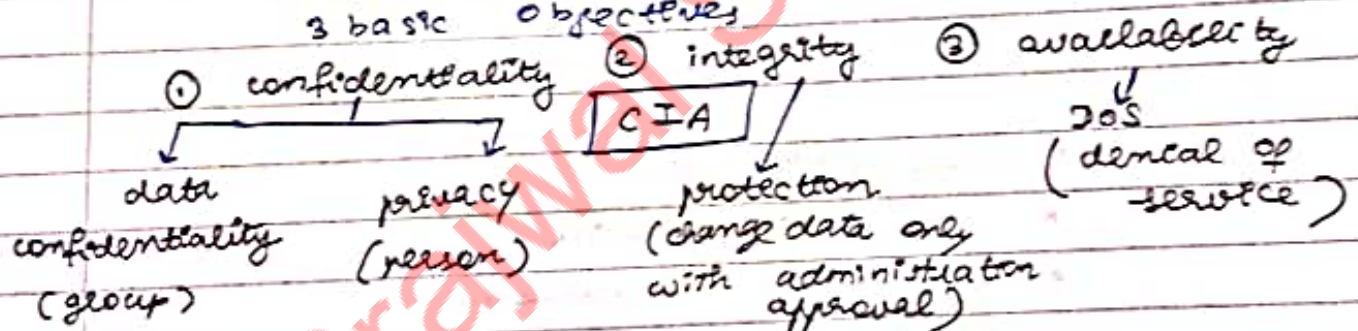 3 basic objectives
① confidentiality ② integrity ③ availability
CIA
DoS
(denial of service)
data confidentiality (group)
privacy (person)
protection (change data only with administration approval)